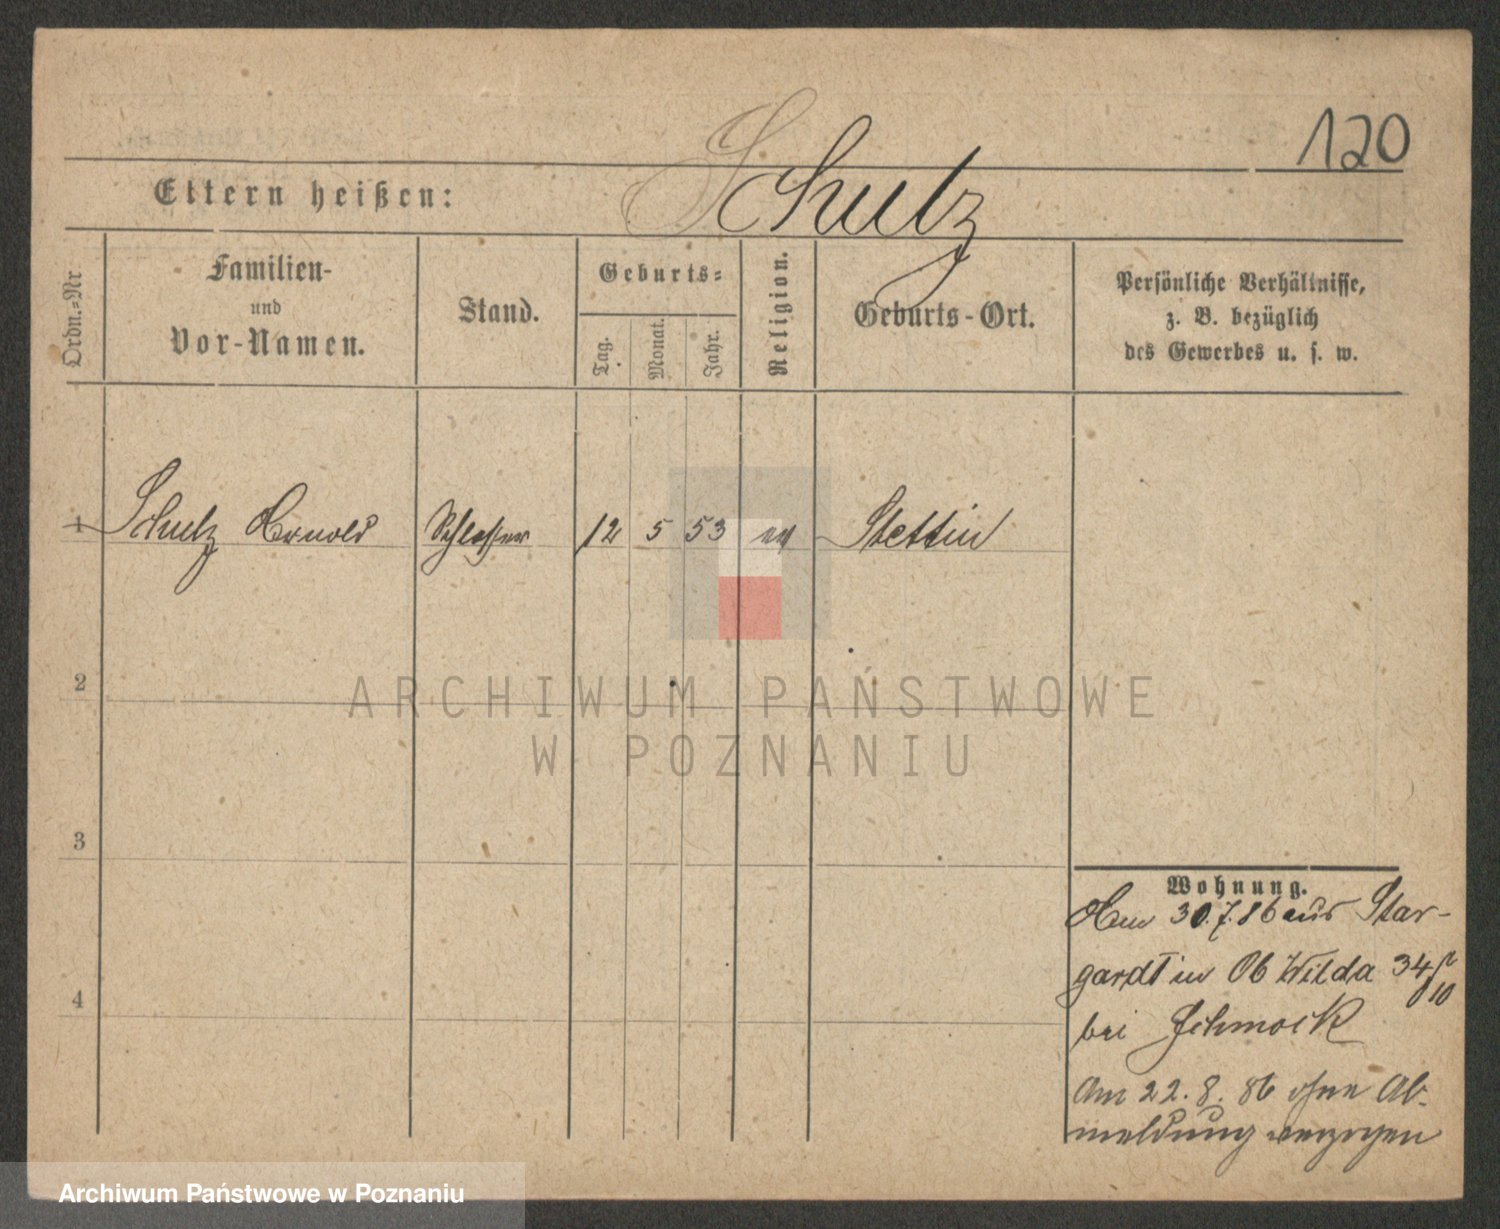 120
Schulz
Eltern heißen:
Ordn.=Nr.
Familien-
und
Vor-Namen.
Stand.
Geburts=
Tag.
Monat.
Jahr.
Religion.
Geburts-Ort.
Persönliche Verhältnisse,
z. B. bezüglich
des Gewerbes u. s. w.
1 Schulz Arnold Schlosser 12 5 53 ev Stettin
2
3
4
ARCHIWUM PAŃSTWOWE
W POZNANIU
Wohnung.
Am 30.7.86 aus Star-
gardt in Ob Wilda 34
bei Schmock
Am 22.8.86 ohne Ab-
meldung verzogen
Archiwum Państwowe w Poznaniu